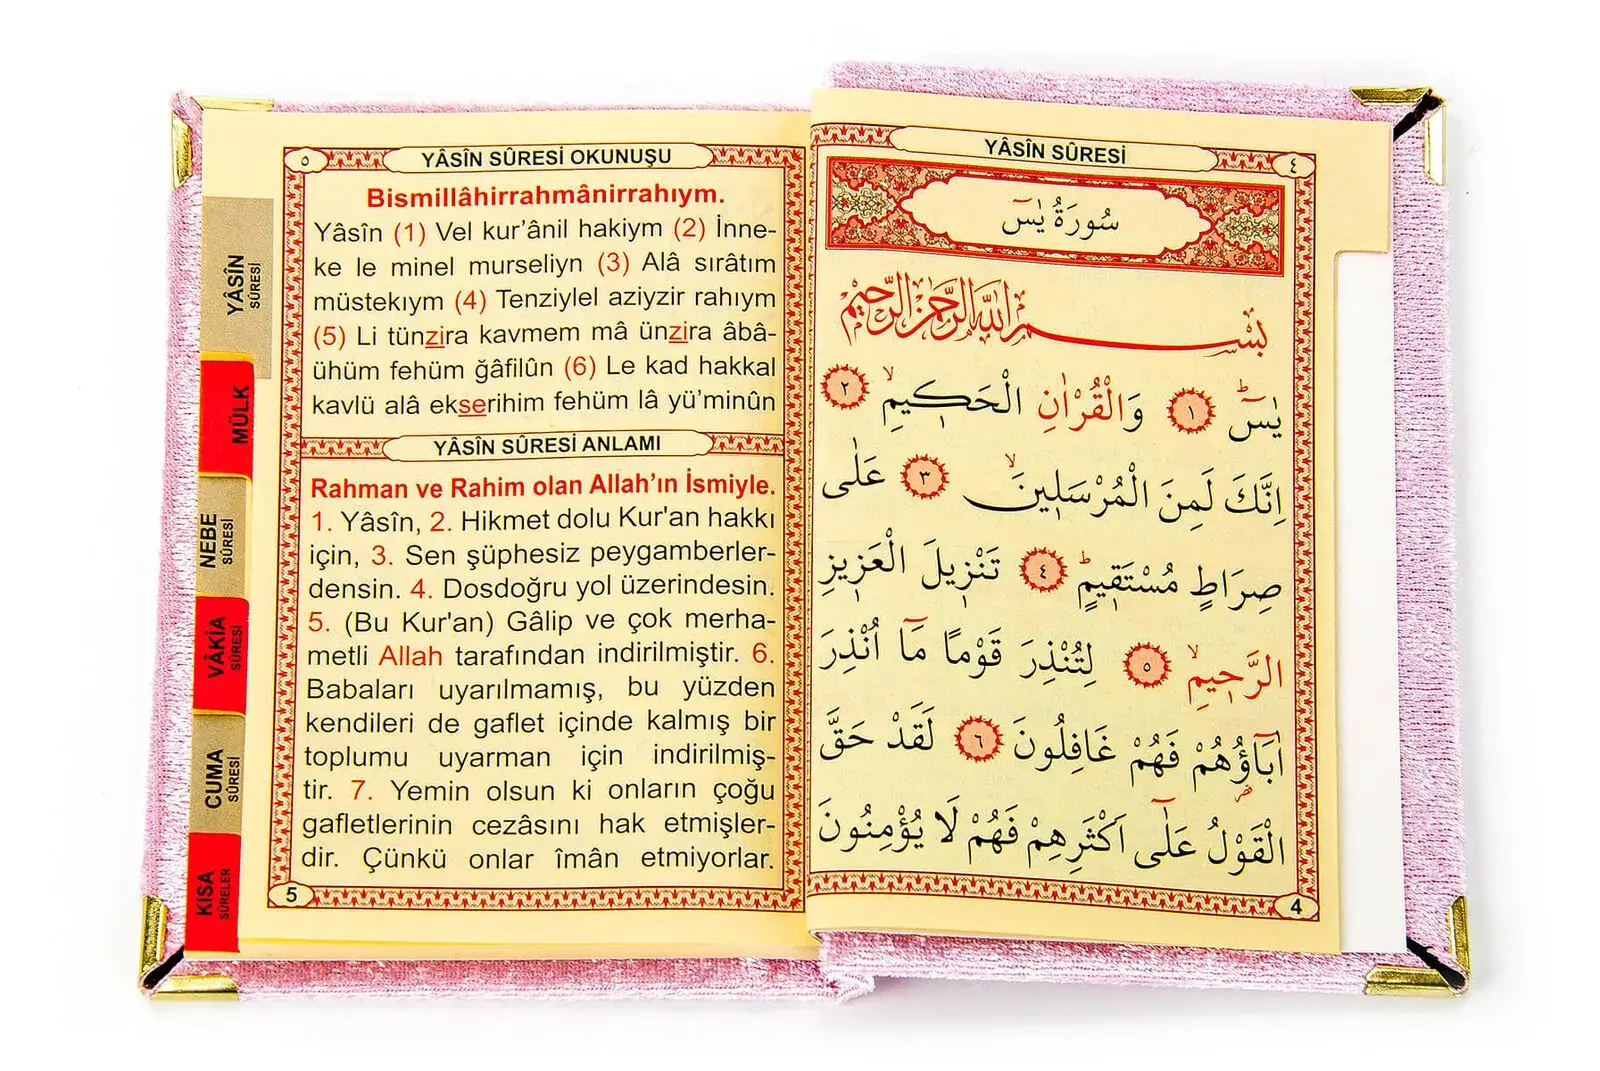 YÂSÎN SÛRESİ
٤
سُورَةُ يٰسٓ
بِسْمِ اللّٰهِ الرَّحْمٰنِ الرَّحٖيمِ
يٰسٓ ۚ ١ وَالْقُرْاٰنِ الْحَكٖيمِ ۙ ٢
اِنَّكَ لَمِنَ الْمُرْسَلٖينَ ۙ ٣ عَلٰى
صِرَاطٍ مُسْتَقٖيمٍ ۜ ٤ تَنْزٖيلَ الْعَزٖيزِ
الرَّحٖيمِ ۙ ٥ لِتُنْذِرَ قَوْمًا مَٓا اُنْذِرَ
اٰبَٓاؤُ۬هُمْ فَهُمْ غَافِلُونَ ٦ لَقَدْ حَقَّ
الْقَوْلُ عَلٰٓى اَكْثَرِهِمْ فَهُمْ لَا يُؤْمِنُونَ
4
٥
YÂSÎN SÛRESİ OKUNUŞU
Bismillâhirrahmânirrahıym.
Yâsîn (1) Vel kur’ânil hakiym (2) İnne-
ke le minel murseliyn (3) Alâ sırâtım
müstekıym (4) Tenziylel aziyzir rahıym
(5) Li tünzira kavmem mâ ünzira âbâ-
ühüm fehüm ğâfilûn (6) Le kad hakkal
kavlü alâ ekserihim fehüm lâ yü’minûn
YÂSÎN SÛRESİ ANLAMI
Rahman ve Rahim olan Allah’ın İsmiyle.
1. Yâsîn, 2. Hikmet dolu Kur'an hakkı
için, 3. Sen şüphesiz peygamberler-
densin. 4. Dosdoğru yol üzerindesin.
5. (Bu Kur'an) Gâlip ve çok merha-
metli Allah tarafından indirilmiştir. 6.
Babaları uyarılmamış, bu yüzden
kendileri de gaflet içinde kalmış bir
toplumu uyarman için indirilmiş-
tir. 7. Yemin olsun ki onların çoğu
gafletlerinin cezâsını hak etmişler-
dir. Çünkü onlar îmân etmiyorlar.
5
YÂSÎN
SÛRESİ
MÜLK
NEBE
SÛRESİ
VÂKİA
SÛRESİ
CUMA
SÛRESİ
KISA
SÛRELER